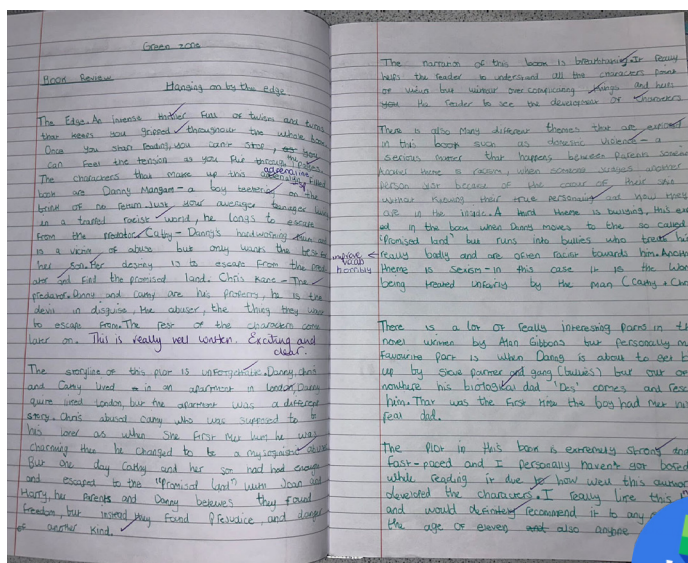 Green zone
Book Review
Hanging on by the edge
The Edge. An intense thriller full of twists and turns
that keeps you gripped throughout the whole book.
Once you start reading, you can't stop, you
can feel the tension as you flip through the pages.
The characters that make up this adrenaline filled
book are Danny Mangam - a boy teetering on the
brink of no return. Just your average teenager living
in a racist world, he longs to escape
from the predator. Cathy - Danny's hardworking mum
is a victim of abuse but only wants the best for
her son. Her destiny is to escape from the pred
ator and find the promised land. Chris Kane - The
predator. Danny and Cathy are his property, he is the
devil in disguise, the abuser, the thing they want
to escape from. The rest of the characters come
later on. This is really well written. Exciting and
clear.
The storyline of this plot is unforgettable. Danny, Chris
and Cathy lived in an apartment in London. Danny
quite liked London, but the apartment was a different
story. Chris abused Cathy who was supposed to be
his lover as when she first met him, he was
charming then he changed to be a mysoginist
But one day Cathy and her son had had enough
and escaped to the "Promised land" with Joan and
Harry, her parents and Danny believes they found
freedom, but instead they found prejudice, and danger
of another kind.
The narration of this book is breathtaking. It really
helps the reader to understand all the characters point
of view but without over complicating things and helps
the reader to see the development of characters
There is also many different themes that are
in this book such as domestic violence - a
serious matter that happens between parents
Another theme is racism, when someone judges another
person just because of the colour of their skin
without knowing their true personality and how they
are in the inside. A third theme is bullying, this
ed in the book when Danny moves to the so called
'Promised land' but runs into bullies who treats him
really badly and are often racist towards him. Another
improve vocab
horribly
theme is Sexism - in this case it is the
being treated unfairly by the man (Cathy + Chris
There is a lot of really interesting parts in th
novel written by Alan Gibbons but personally my
favourite part is when Danny is about to get b
up by Steve parker and gang (bullies) but out of
nowhere his biological dad 'Des' comes and resc
him. That was the first time the boy had met his
real dad.
The plot in this book is extremely strong and
fast-paced and I personally haven't got bored
while reading it due to how well this author
developed the characters. I really like this
and would definitely recommend it to any
the age of eleven also anyone